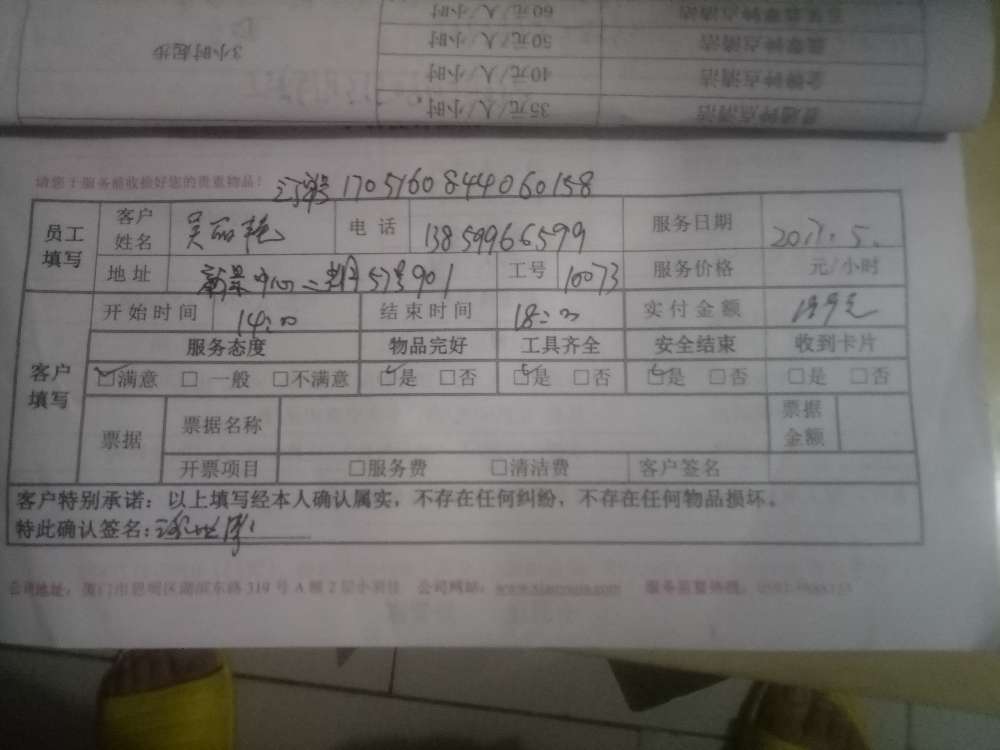 60元/人/小时
50元/人/小时 温馨钟点清洁
3小时起步
40元/人/小时 金牌钟点清洁
35元/人/小时 普通钟点清洁
请您于服务前收捡好您的贵重物品！
订单号 1705160844060158
员工填写 客户姓名 吴丽艳 电话 13859966599 服务日期 2017.5.
地址 新景中心 57号901 工号 10073 服务价格 元/小时
客户填写 开始时间 14:00 结束时间 18:00 实付金额 199元
服务态度 物品完好 工具齐全 安全结束 收到卡片
☑满意 □一般 □不满意 ☑是 □否 ☑是 □否 ☑是 □否 □是 □否
票据 票据名称 票据金额
开票项目 □服务费 □清洁费 客户签名
客户特别承诺：以上填写经本人确认属实，不存在任何纠纷，不存在任何物品损坏。
特此确认签名：
公司地址：厦门市思明区湖滨东路 319 号 A 幢 2 层小羽佳 公司网站： 服务监督热线：